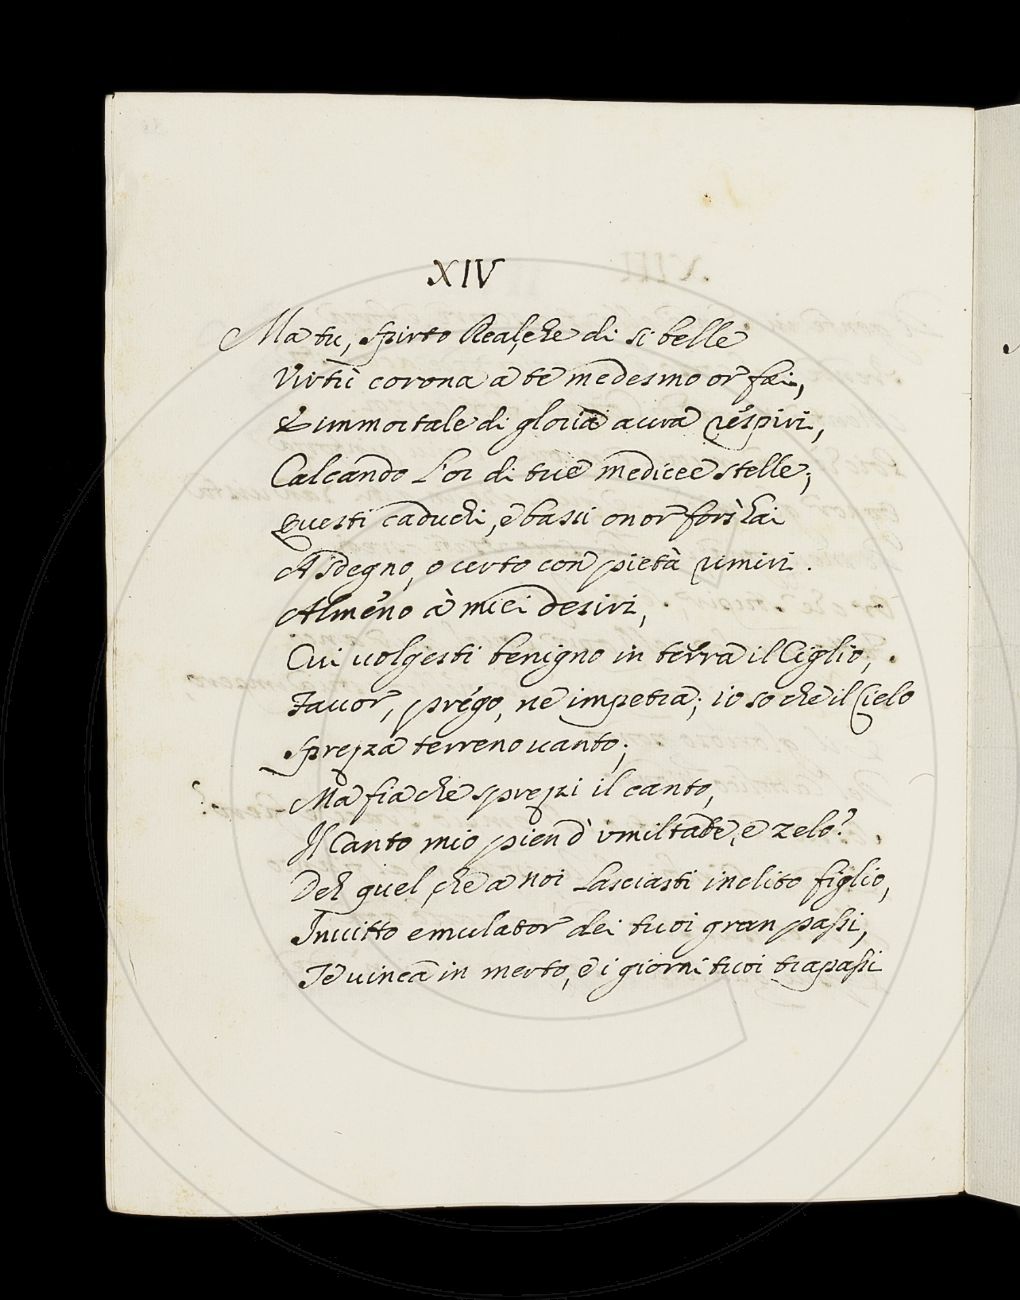 XIV
Ma tu, spirto Real, che di si belle
Virtù corona a te medesmo or fai,
E immortale di gloria aura respiri,
Calcando l'or di tue medicee stelle;
Questi caduchi, e bassi onor fors' hai
A sdegno, o certo con pietà rimiri.
Almeno à miei desiri,
Cui volgesti benigno in terra il Ciglio,
Favor, prego, ne impetra; io so che il Cielo
Sprezza terreno vanto;
Ma fia che sprezzi il canto,
Il Canto mio pien d' umiltade, e zelo?
Deh quel, che a noi Lasciasti inclito figlio,
Invitto emulator dei tuoi gran passi,
Te vinca in merto, e i giorni tuoi trapassi